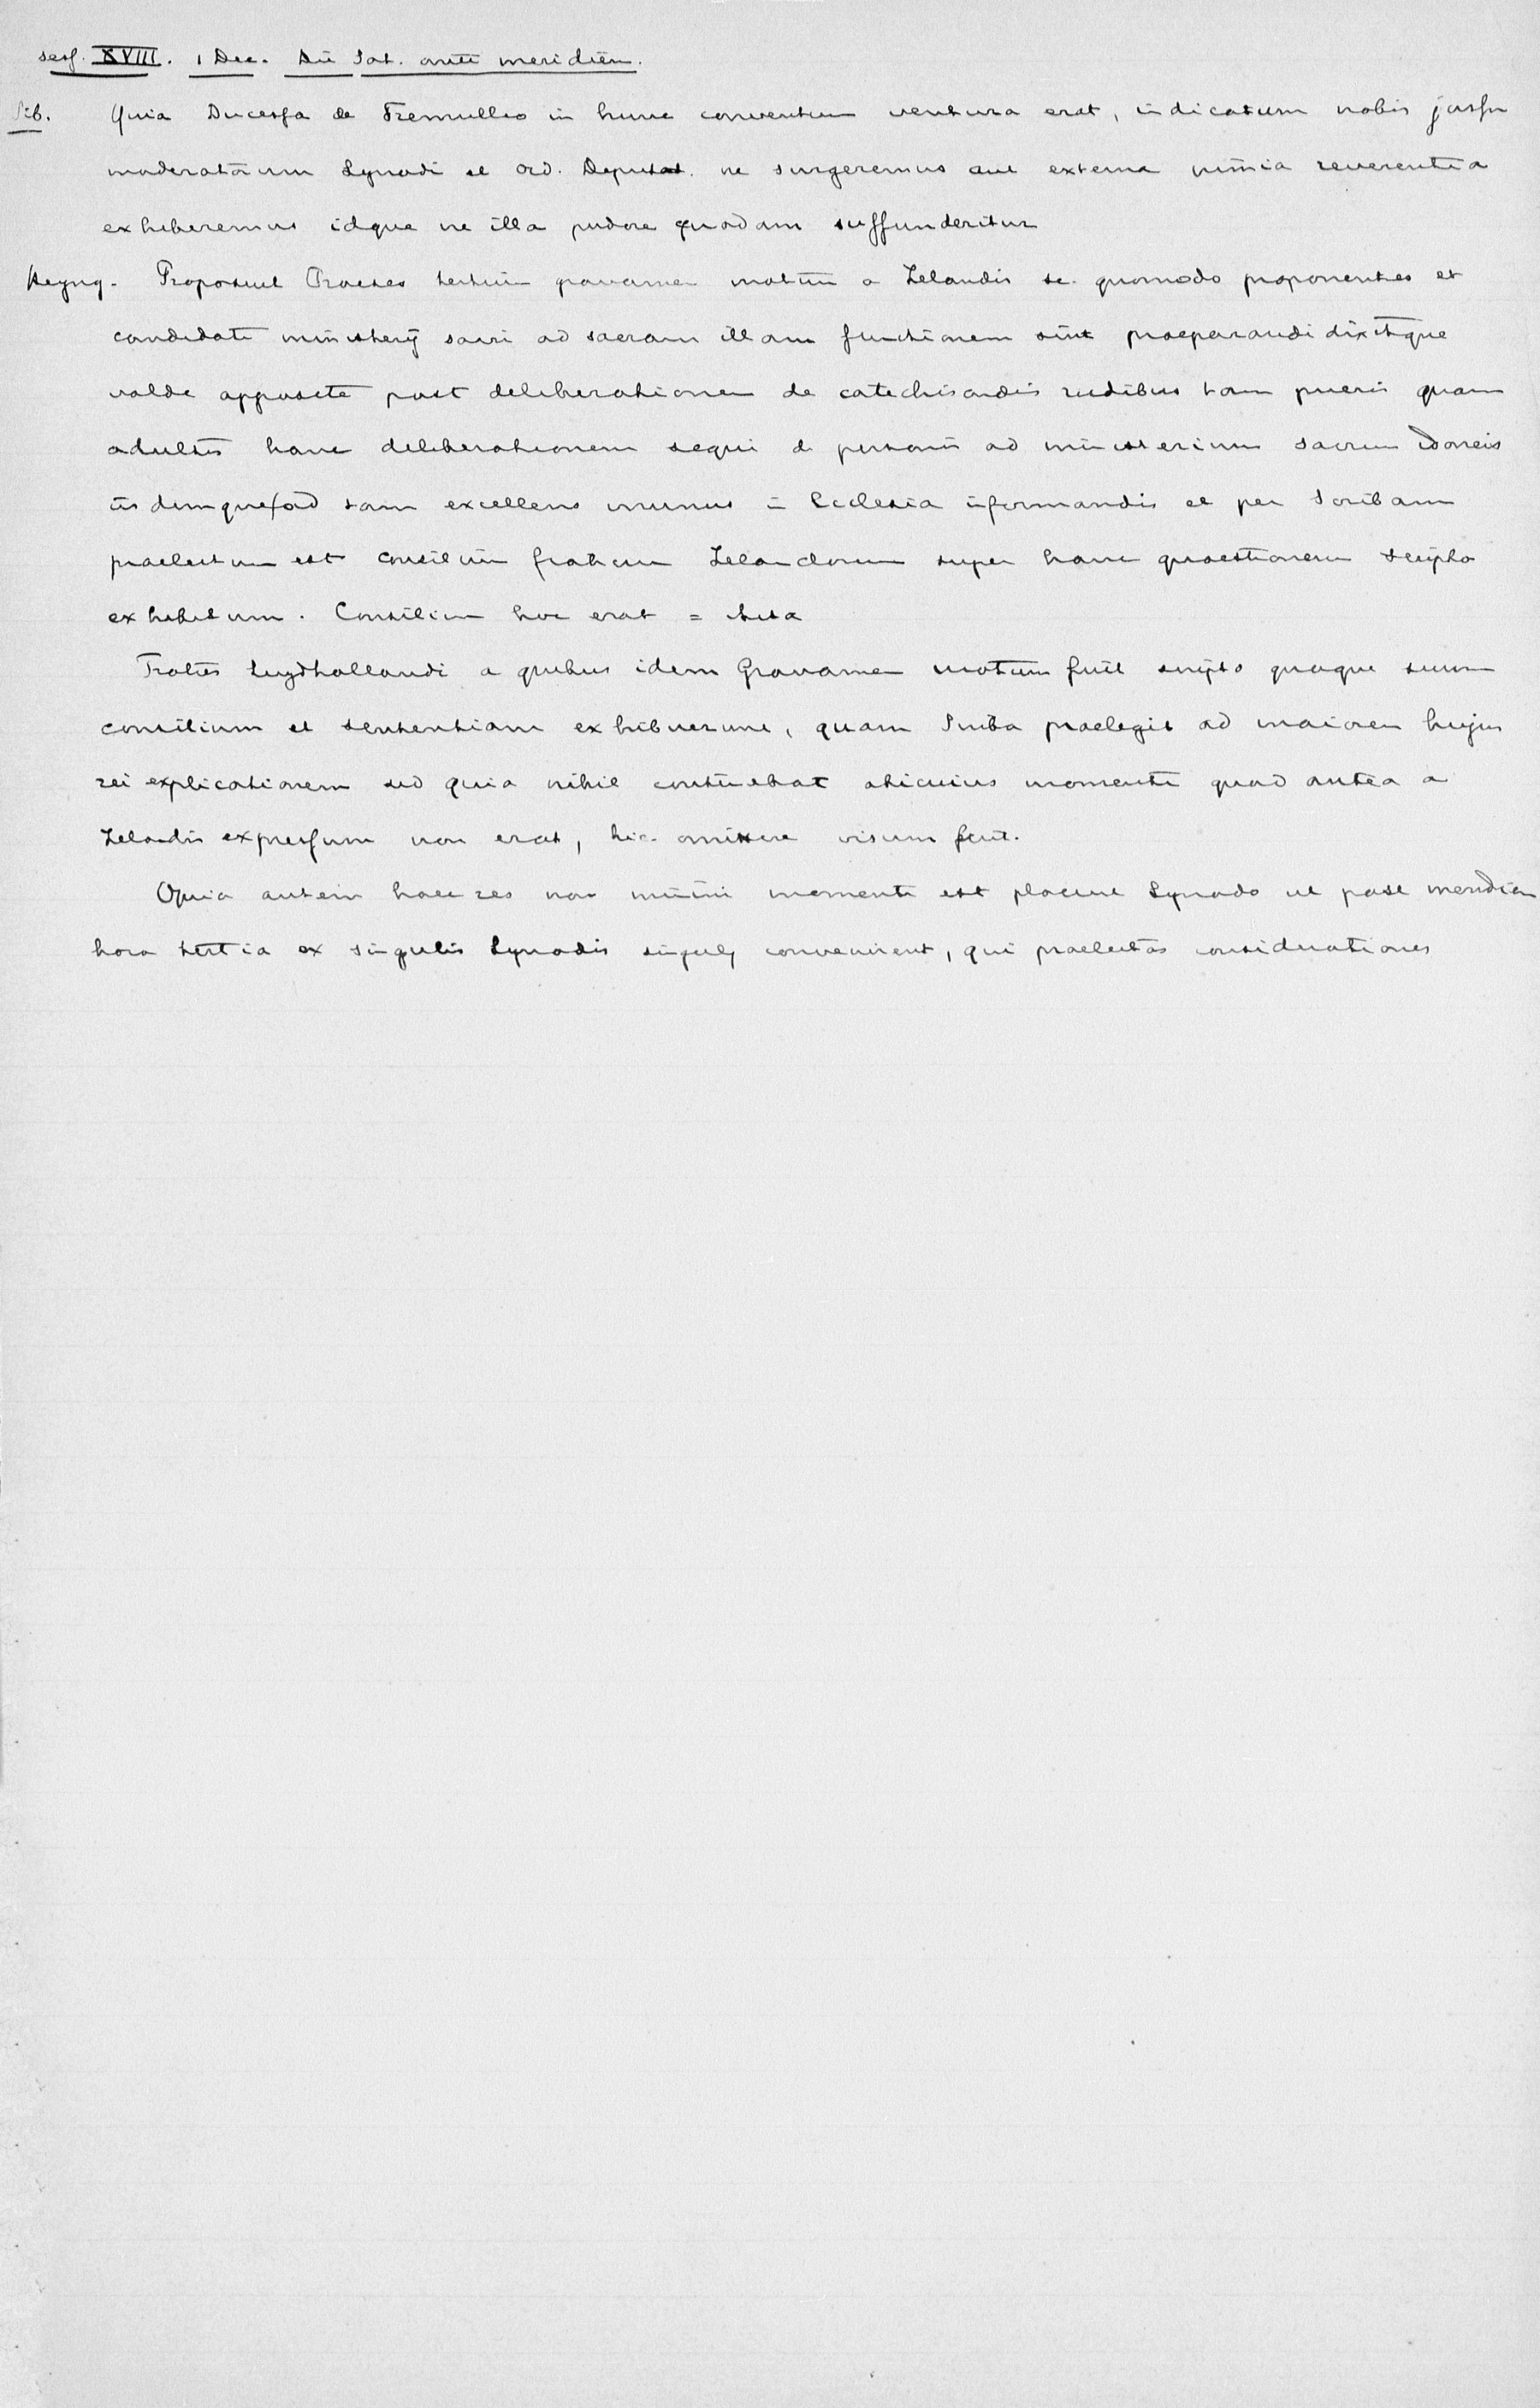 sess. XVIII. 1 Dec. Die Sat. ante meridiem.
Sib. Quia Ducessa de Tremullio in hunc conventum ventura erat, indicatum nobis jussu
moderatorum Synodi et Ord. Deputat. ne surgeremus aut externa nimia reverentia
exhiberemus idque ne illa pudore quodam suffunderitur
Heyng. Proposuit Praeses tertium gravamen motum a Zelandis sc. quomodo proponentes et
candidati ministerij sacri ad sacram illam functionem sint praeparandi dixitque
valde apposite post deliberationem de catechisandis rudibus tam pueris quam
adultis hanc deliberationem sequi de personis ad ministerium sacrum idoneis
iisdemque ad tam excellens munus in Ecclesia informandis et per Scribam
praelectum est consilium fratrum Zelandorum super hanc quaestionem scripto
exhibitum. Consilium hoc erat = ista
Fratres Suydhollandi a quibus idem Gravamen motum fuit scripto quoque suum
consilium et sententiam exhibuerunt, quam Scriba praelegit ad maiorem hujus
rei explicationem sed quia nihil continebat alicuius momenti quod antea a
Zelandis expressum non erat, hic omittere visum fuit.
Quia autem haec res non minimi momenti est placuit Synodo ut post meridiem
hora tertia ex singulis Synodis singuli convenirent, qui praelectas considerationes